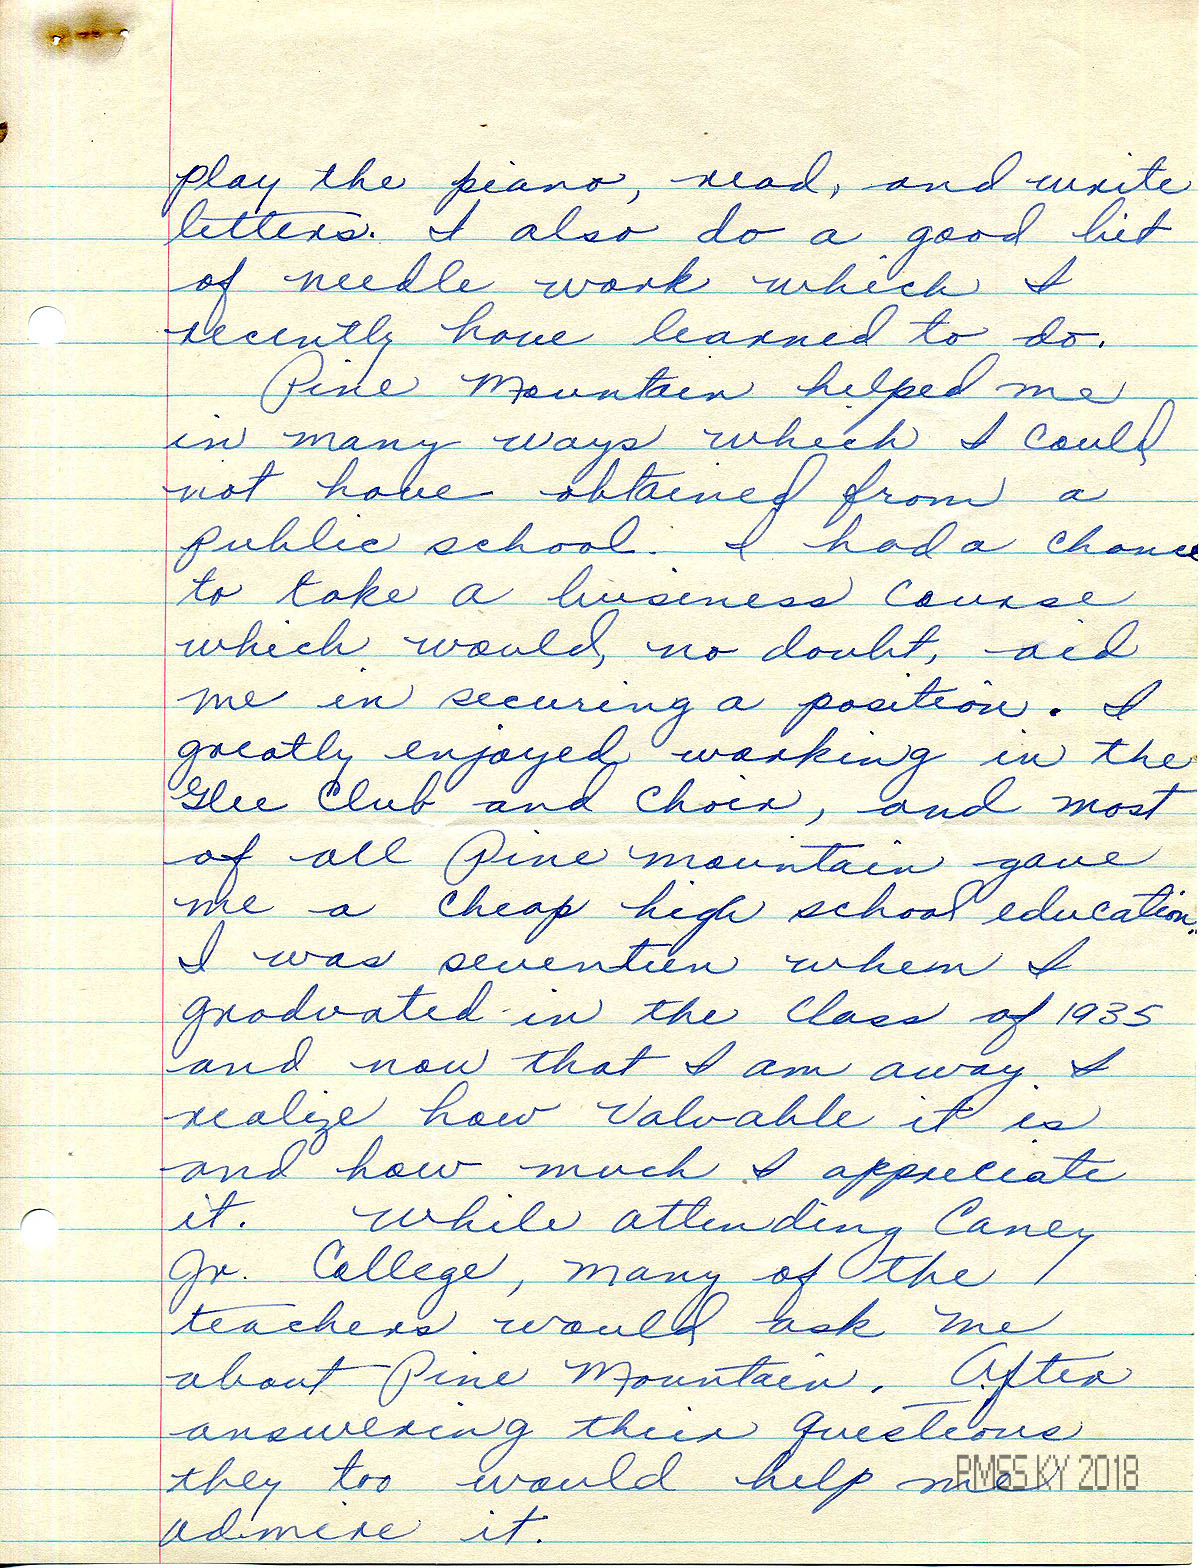 play the piano, read, and write
letters. I also do a good bit
of needle work which I
recently have learned to do.
Pine Mountain helped me
in many ways which I could
not have obtained from a
public school. I had a chance
to take a business course
which would, no doubt, aid
me in securing a position. I
greatly enjoyed working in the
Glee Club and Choir, and most
of all Pine Mountain gave
me a cheap high school education.
I was seventeen when I
graduated in the class of 1935
and now that I am away I
realize how valuable it is
and how much I appreciate
it. While attending Caney
Jr. College, many of the
teachers would ask me
about Pine Mountain. After
answering their questions
they too would help me
admire it.
PMSS KY 2018